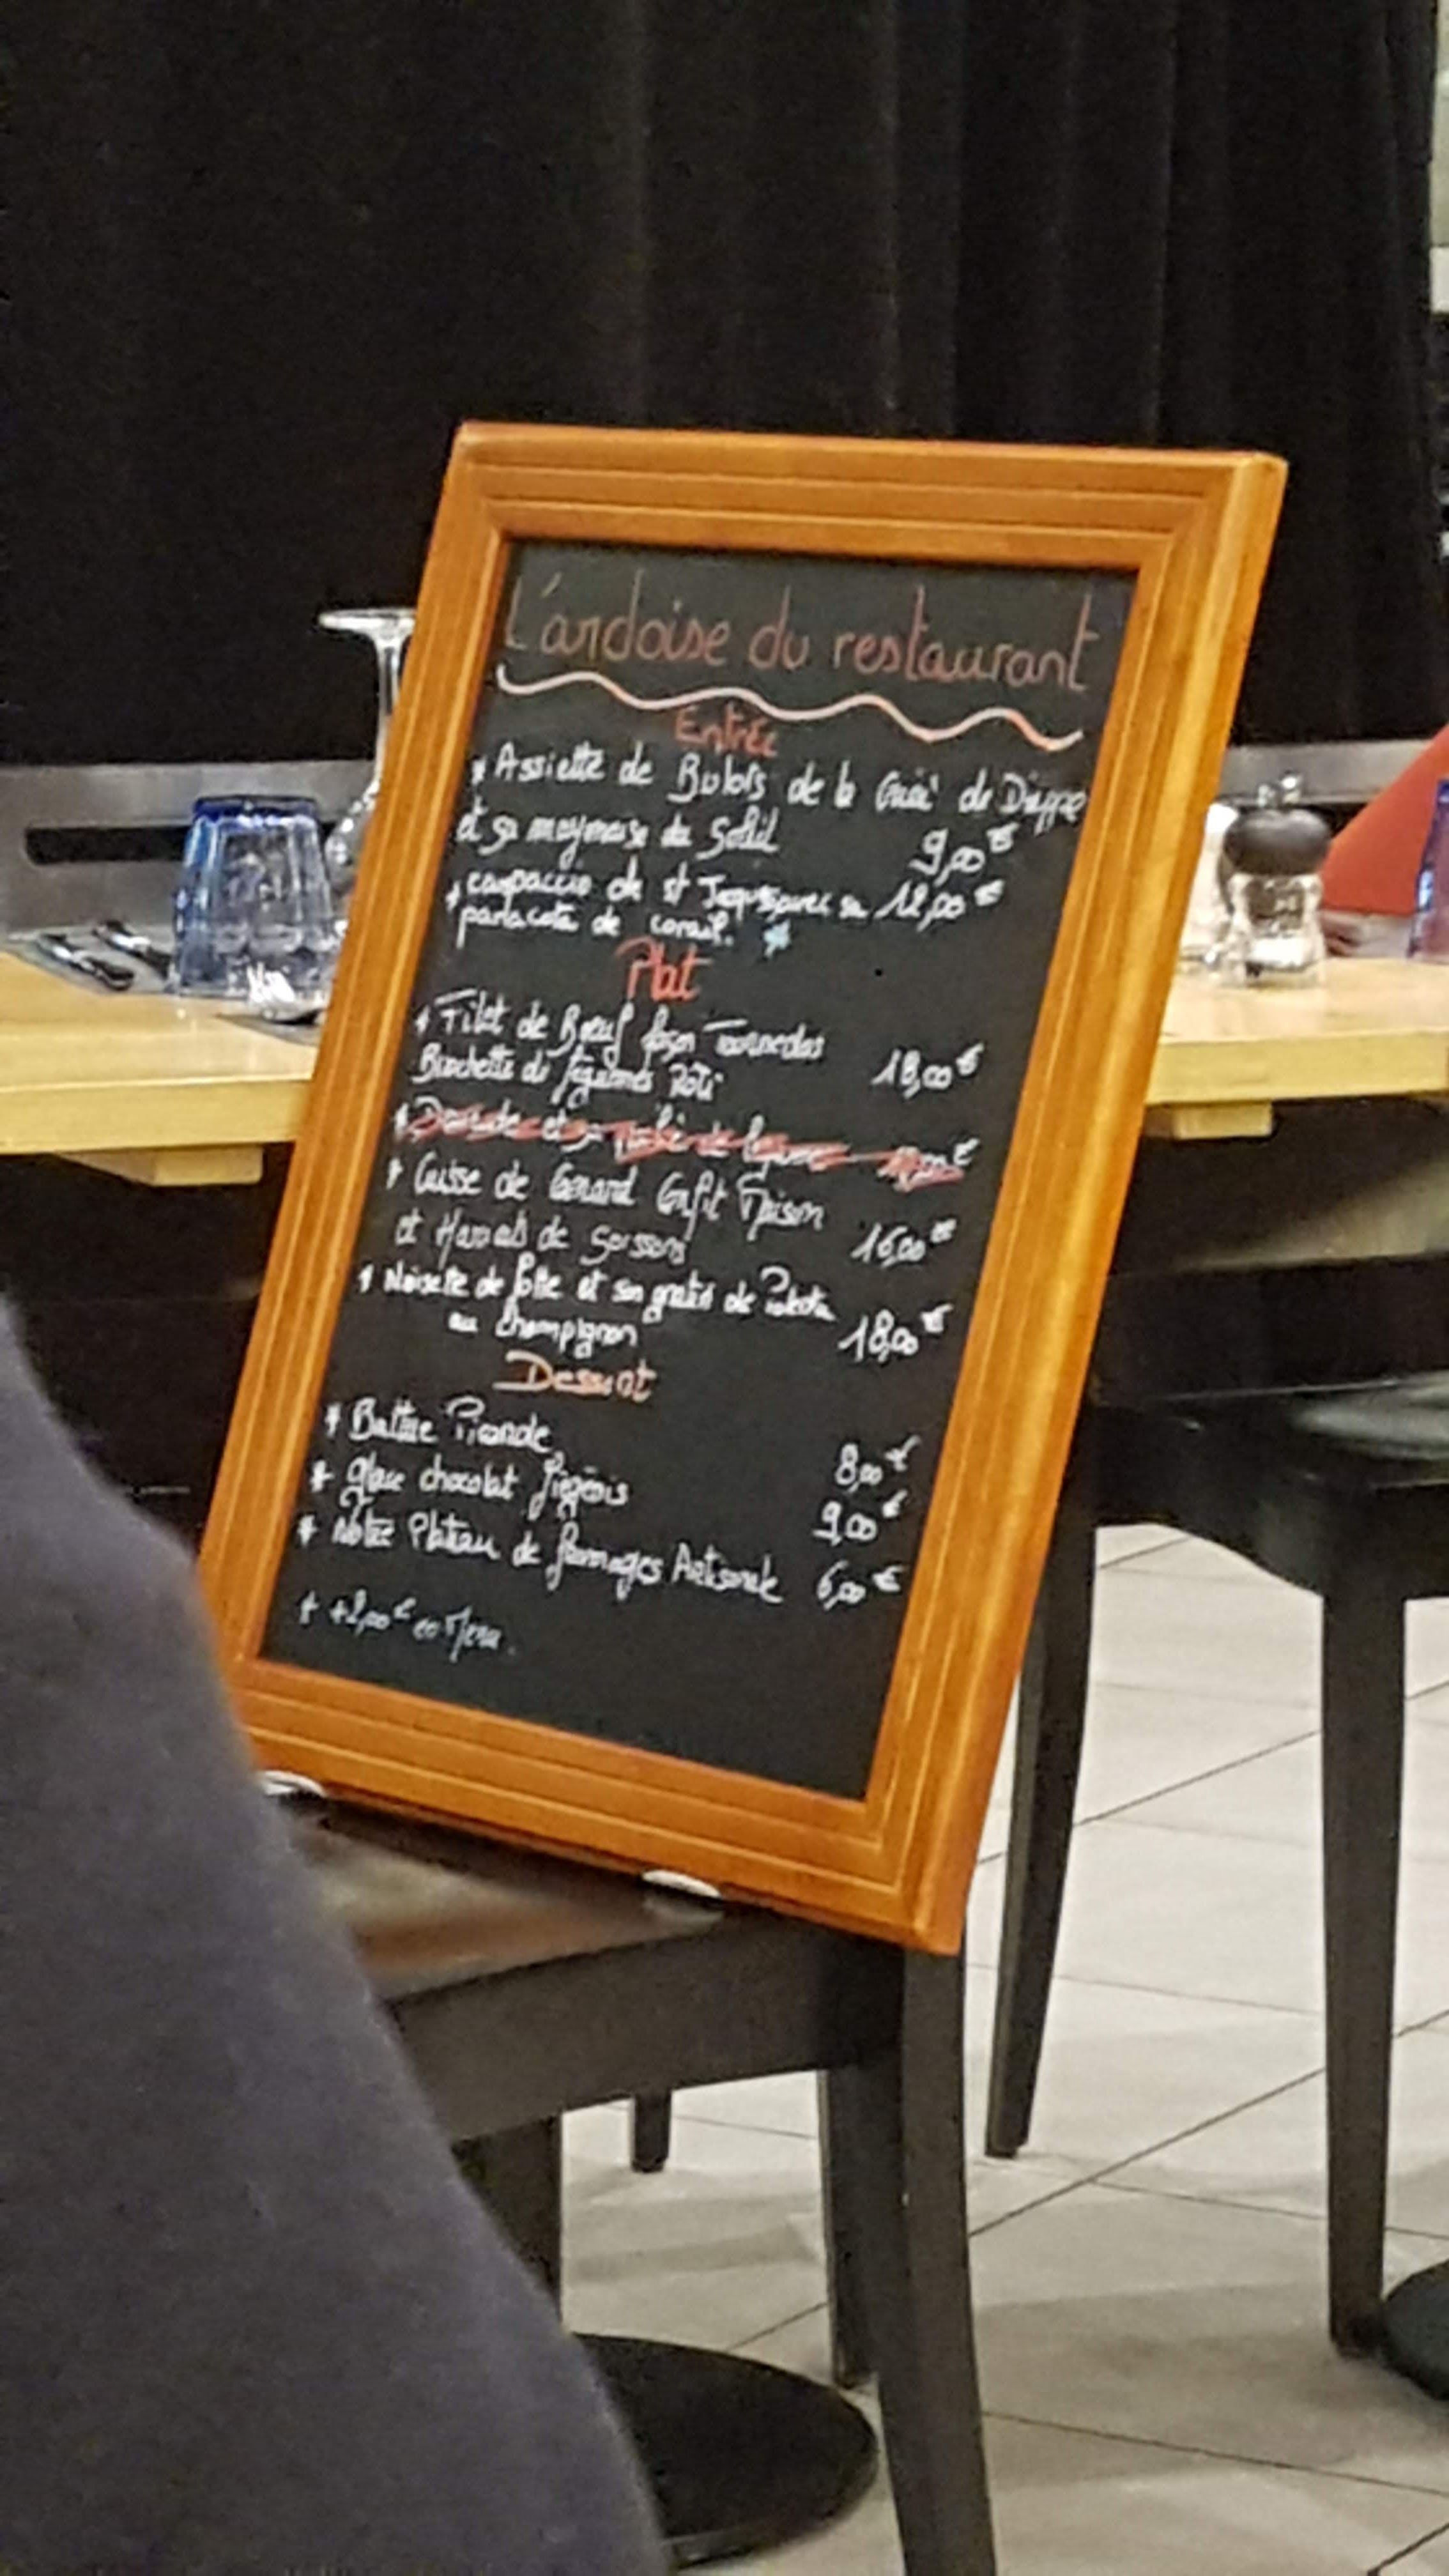 L'ardoise du restaurant
Entrée
* Assiette de Bulots de la de Dieppe
et sa du Soleil 9,00€
* carpaccio de st avec sa 12,00€
de corail. *
Plat
* Filet de Bœuf façon Tournedos
Brochette de légumes Roti 18,00€
* et sa de
* Cuisse de Canard Confit Maison
et de Soissons 16,00€
* Noisette de et son gratin de
au Champignon 18,00€
Dessert
* 8,00€
* glace chocolat liégeois 9,00€
* Notre Plateau de fromages 6,00€
* +2,00€ Menu.